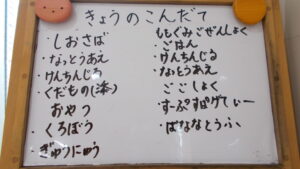 きょうのこんだて
・しおさば
・なっとうあえ
・けんちんじる
・くだもの(漆)
おやつ
・くろぼう
・ぎゅうにゅう
ももぐみごぜんしょく
・ごはん
・けんちんじる
・なっとうあえ
ごごしょく
・すーぷすぱげてぃー
・ばななとうふ